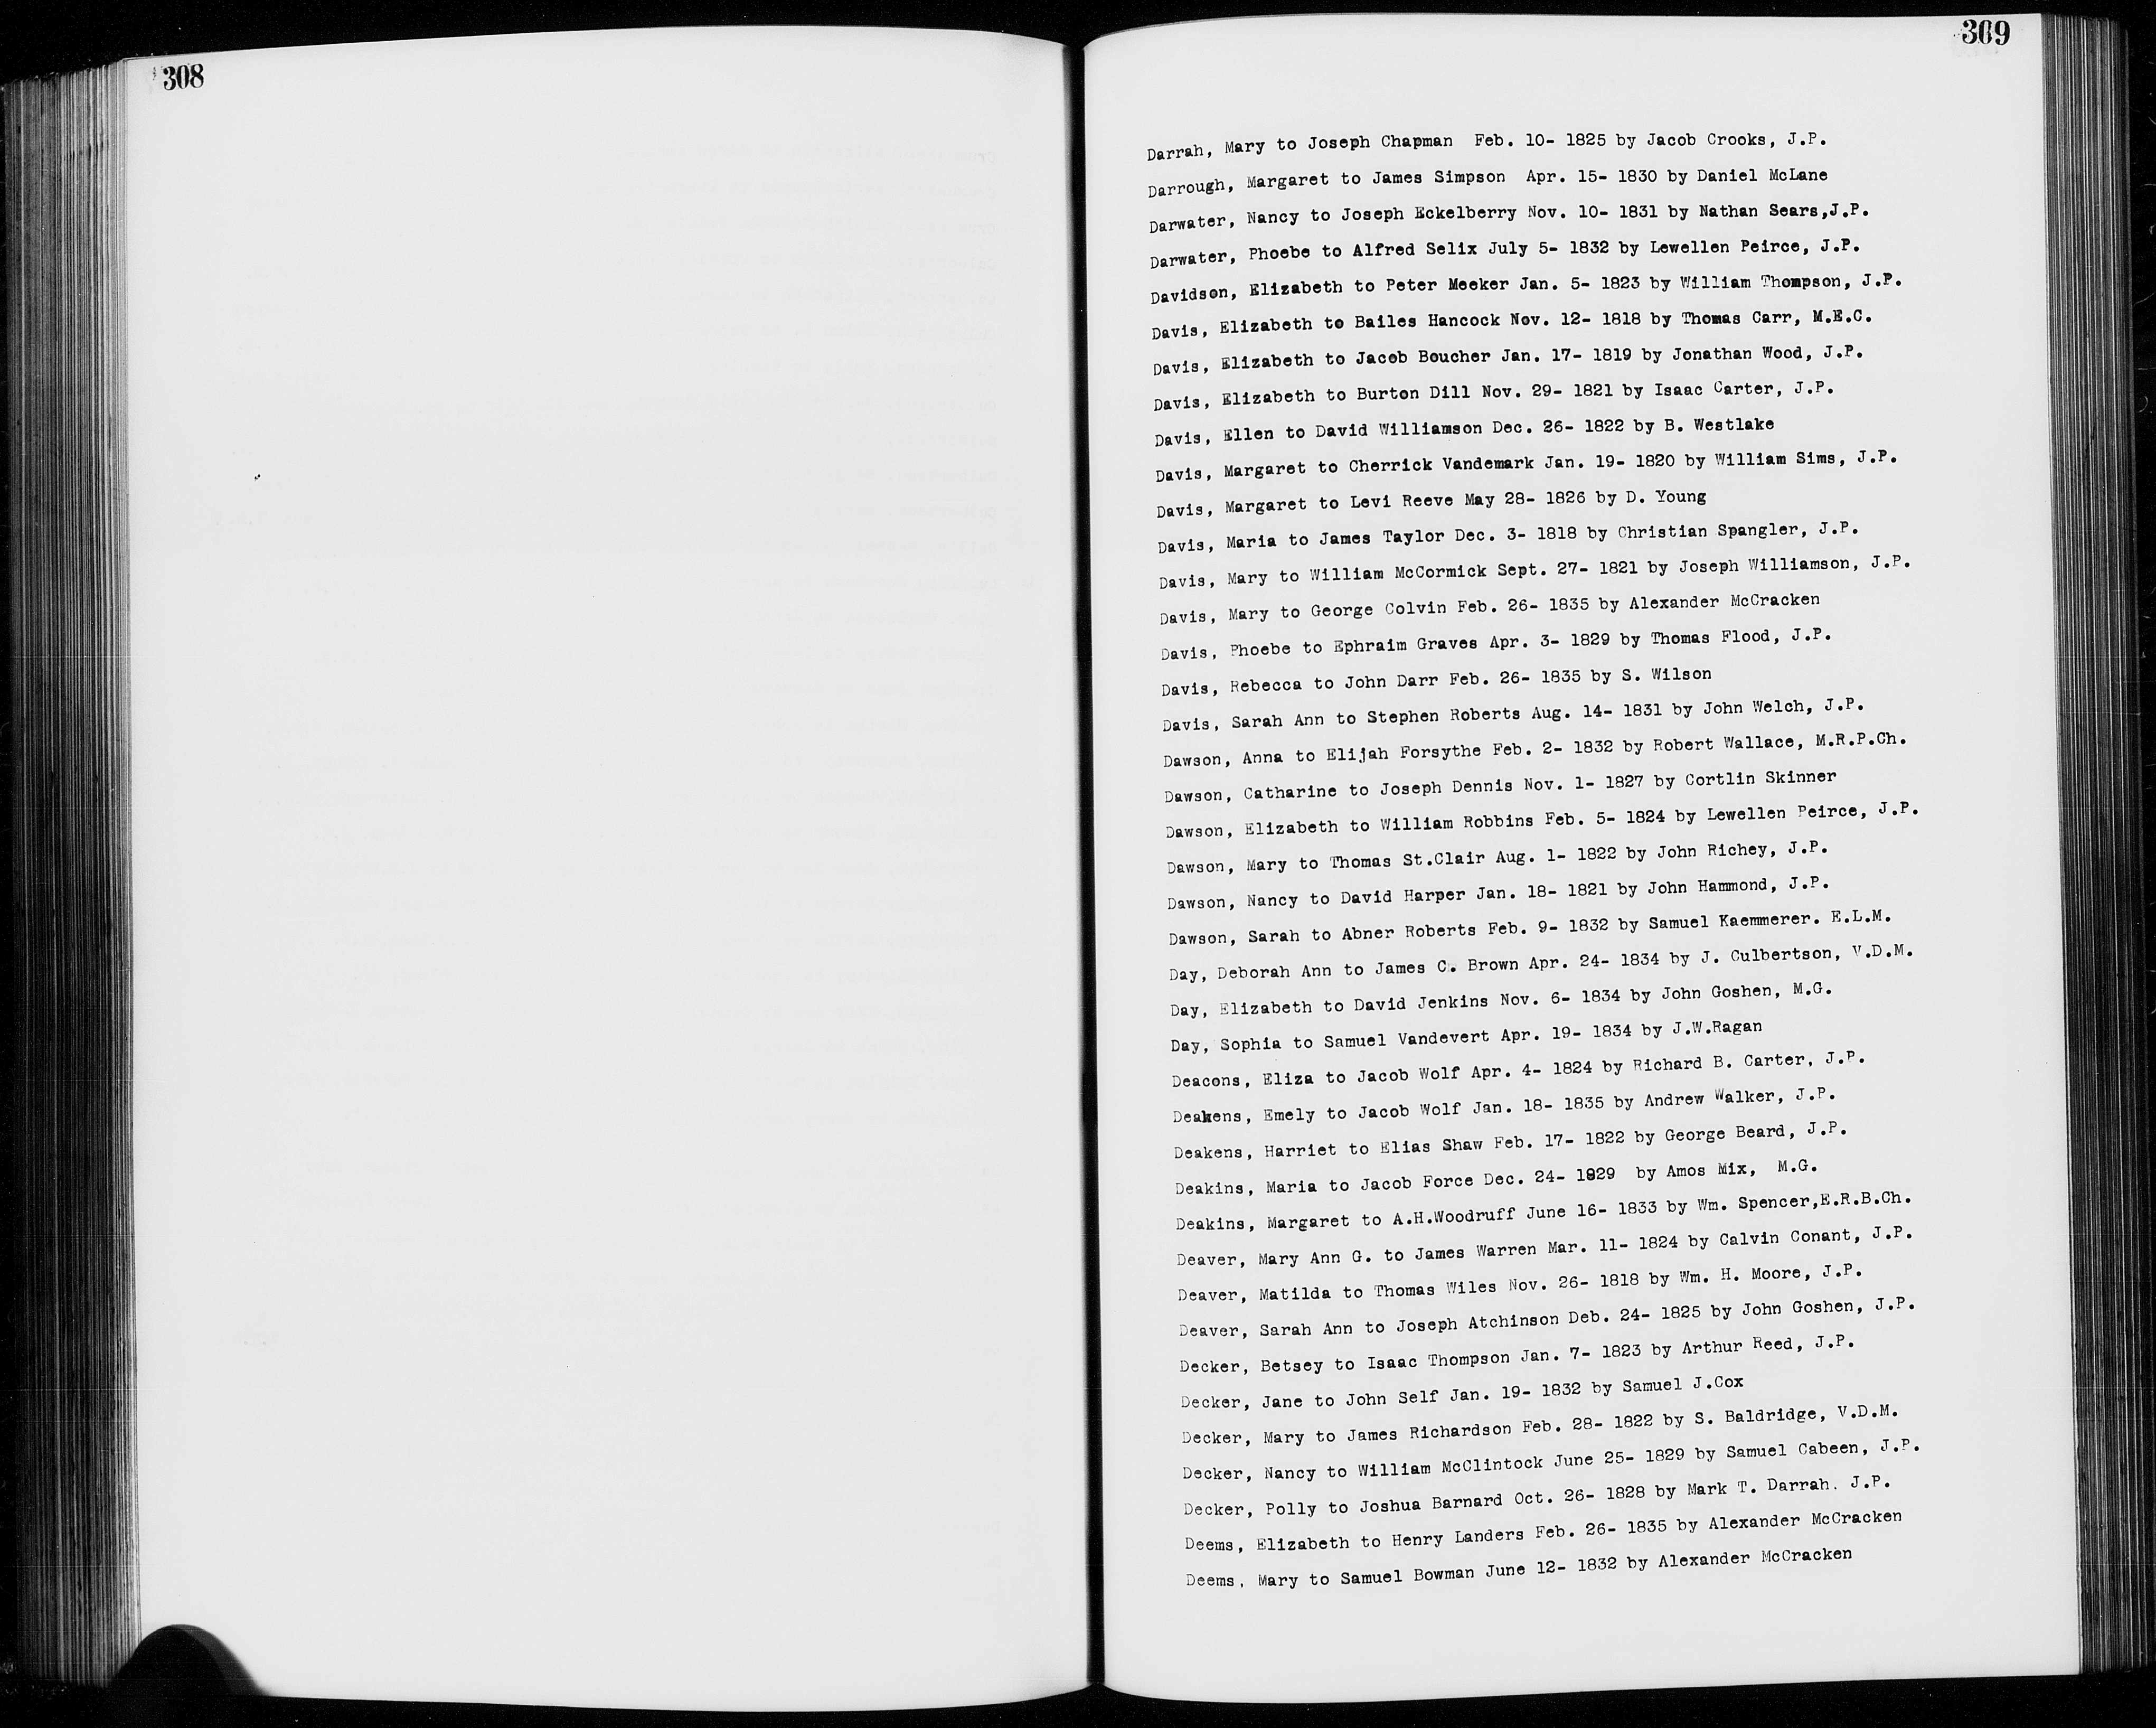 308
309
Darrah, Mary to Joseph Chapman Feb. 10- 1825 by Jacob Crooks, J.P.
Darrough, Margaret to James Simpson Apr. 15- 1830 by Daniel McLane
Darwater, Nancy to Joseph Eckelberry Nov. 10- 1831 by Nathan Sears,J.P.
Darwater, Phoebe to Alfred Selix July 5- 1832 by Lewellen Peirce, J.P.
Davidson, Elizabeth to Peter Meeker Jan. 5- 1823 by William Thompson, J.P.
Davis, Elizabeth to Bailes Hancock Nov. 12- 1818 by Thomas Carr, M.E.C.
Davis, Elizabeth to Jacob Boucher Jan. 17- 1819 by Jonathan Wood, J.P.
Davis, Elizabeth to Burton Dill Nov. 29- 1821 by Isaac Carter, J.P.
Davis, Ellen to David Williamson Dec. 26- 1822 by B. Westlake
Davis, Margaret to Cherrick Vandemark Jan. 19- 1820 by William Sims, J.P.
Davis, Margaret to Levi Reeve May 28- 1826 by D. Young
Davis, Maria to James Taylor Dec. 3- 1818 by Christian Spangler, J.P.
Davis, Mary to William McCormick Sept. 27- 1821 by Joseph Williamson, J.P.
Davis, Mary to George Colvin Feb. 26- 1835 by Alexander McCracken
Davis, Phoebe to Ephraim Graves Apr. 3- 1829 by Thomas Flood, J.P.
Davis, Rebecca to John Darr Feb. 26- 1835 by S. Wilson
Davis, Sarah Ann to Stephen Roberts Aug. 14- 1831 by John Welch, J.P.
Dawson, Anna to Elijah Forsythe Feb. 2- 1832 by Robert Wallace, M.R.P.Ch.
Dawson, Catharine to Joseph Dennis Nov. 1- 1827 by Cortlin Skinner
Dawson, Elizabeth to William Robbins Feb. 5- 1824 by Lewellen Peirce, J.P.
Dawson, Mary to Thomas St.Clair Aug. 1- 1822 by John Richey, J.P.
Dawson, Nancy to David Harper Jan. 18- 1821 by John Hammond, J.P.
Dawson, Sarah to Abner Roberts Feb. 9- 1832 by Samuel Kaemmerer. E.L.M.
Day, Deborah Ann to James C. Brown Apr. 24- 1834 by J. Culbertson, V.D.M.
Day, Elizabeth to David Jenkins Nov. 6- 1834 by John Goshen, M.G.
Day, Sophia to Samuel Vandevert Apr. 19- 1834 by J.W.Ragan
Deacons, Eliza to Jacob Wolf Apr. 4- 1824 by Richard B. Carter, J.P.
Deakens, Emely to Jacob Wolf Jan. 18- 1835 by Andrew Walker, J.P.
Deakens, Harriet to Elias Shaw Feb. 17- 1822 by George Beard, J.P.
Deakins, Maria to Jacob Force Dec. 24- 1829 by Amos Mix, M.G.
Deakins, Margaret to A.H.Woodruff June 16- 1833 by Wm. Spencer,E.R.B.Ch.
Deaver, Mary Ann G. to James Warren Mar. 11- 1824 by Calvin Conant, J.P.
Deaver, Matilda to Thomas Wiles Nov. 26- 1818 by Wm. H. Moore, J.P.
Deaver, Sarah Ann to Joseph Atchinson Deb. 24- 1825 by John Goshen, J.P.
Decker, Betsey to Isaac Thompson Jan. 7- 1823 by Arthur Reed, J.P.
Decker, Jane to John Self Jan. 19- 1832 by Samuel J.Cox
Decker, Mary to James Richardson Feb. 28- 1822 by S. Baldridge, V.D.M.
Decker, Nancy to William McClintock June 25- 1829 by Samuel Cabeen, J.P.
Decker, Polly to Joshua Barnard Oct. 26- 1828 by Mark T. Darrah. J.P.
Deems, Elizabeth to Henry Landers Feb. 26- 1835 by Alexander McCracken
Deems, Mary to Samuel Bowman June 12- 1832 by Alexander McCracken